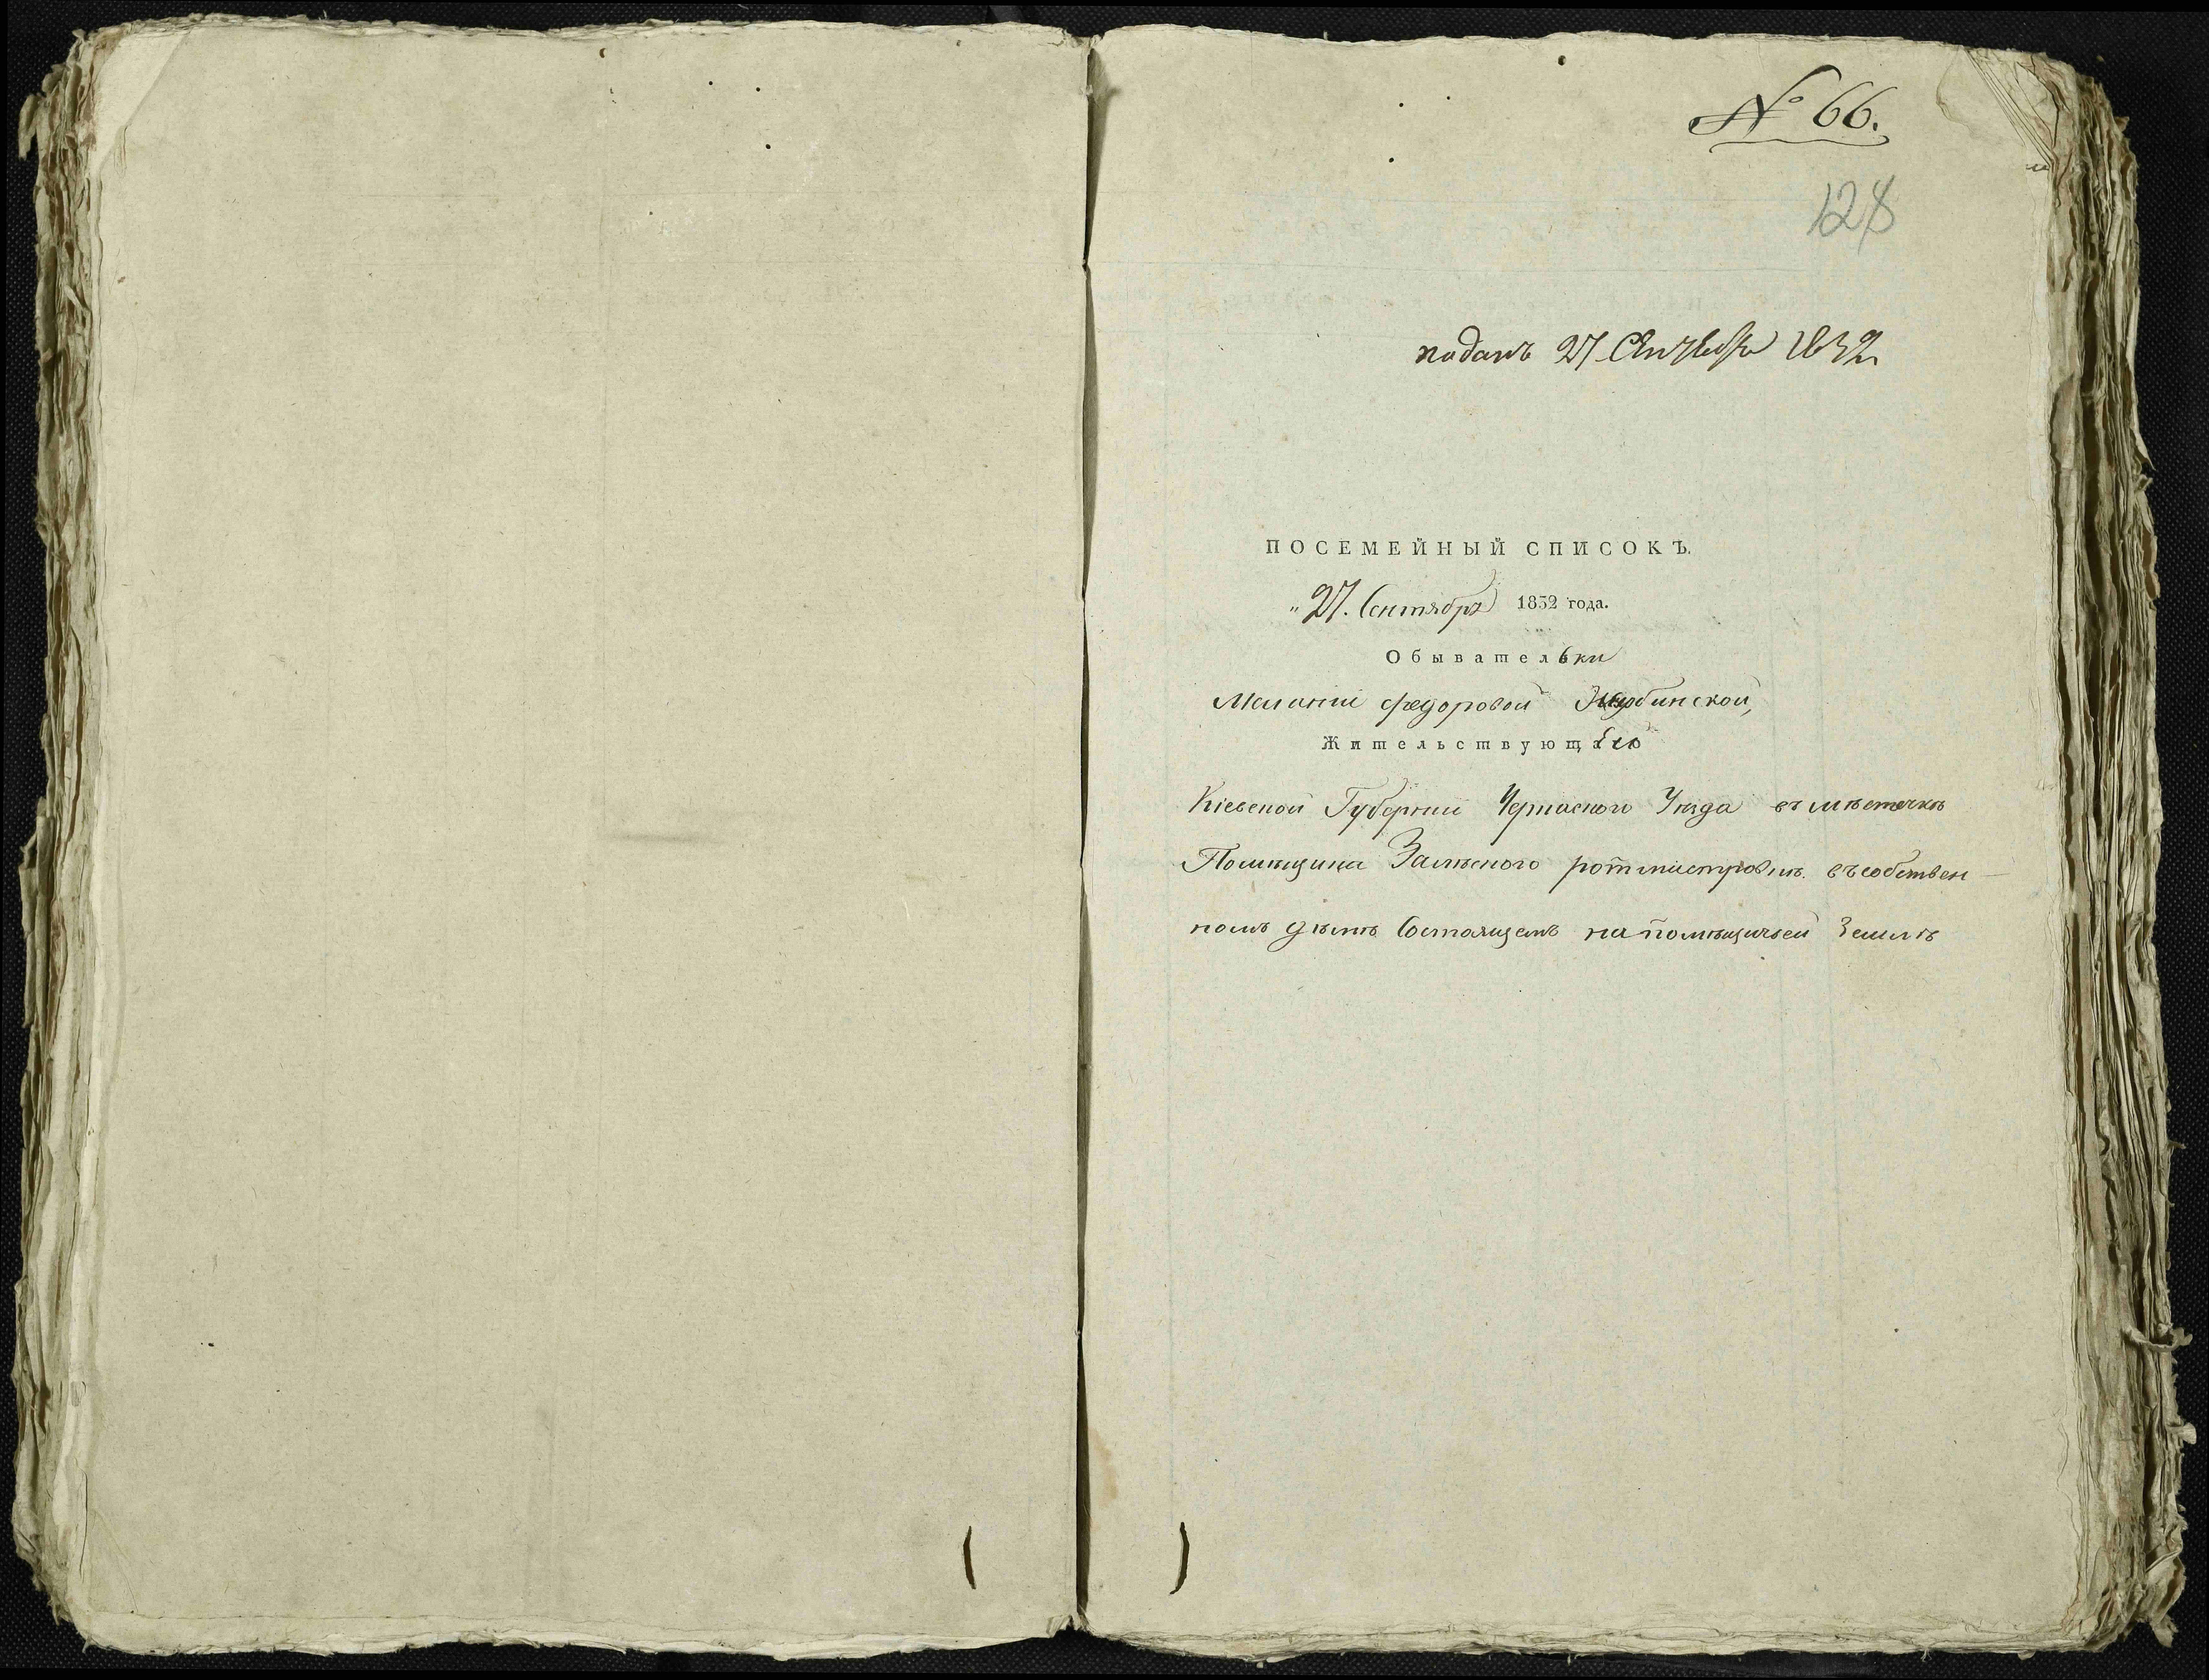 № 66.
128
поданъ 27 Сентября 1832
ПОСЕМЕЙНЫЙ СПИСОКЪ.
„ 27. Сентября 1832 года.
Обывательки
Меланіи Федоровой
Жительствующею
Кіевской Губерніи Черкаского Уѣзда въ мѣстечкѣ
Помѣщика Залѣского ротмистровкѣ въ собствен
номъ домѣ Состоящемъ на помѣщичьей Землѣ